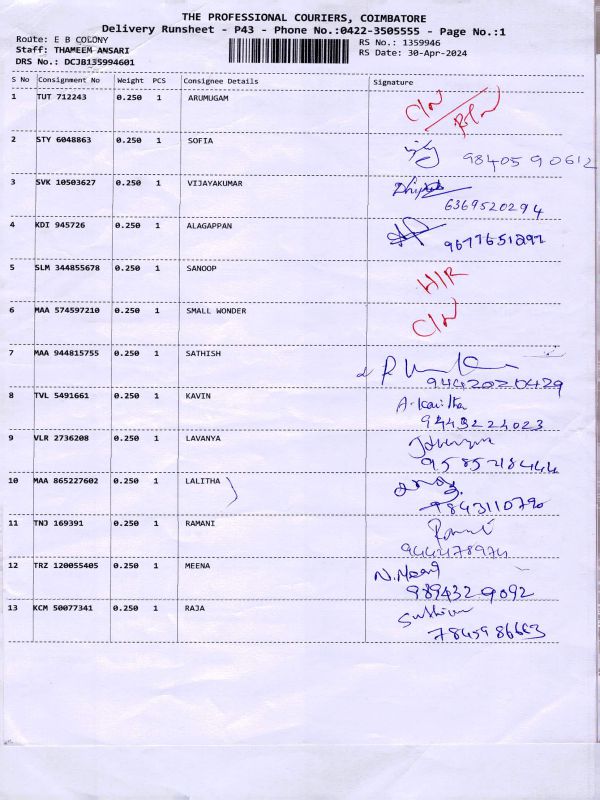 THE PROFESSIONAL COURIERS, COIMBATORE
Delivery Runsheet - P43 - Phone No.:0422-3505555 - Page No.:1
Route: E B COLONY RS No.: 1359946
Staff: THAMEEM ANSARI RS Date: 30-Apr-2024
DRS No.: DCJB135994601
S No Consignment No Weight PCS Consignee Details Signature
1 TUT 712243 0.250 1 ARUMUGAM C/N
2 STY 6048863 0.250 1 SOFIA
9840590612
3 SVK 10503627 0.250 1 VIJAYAKUMAR
6369520294
4 KDI 945726 0.250 1 ALAGAPPAN
9677651297
5 SLM 344855678 0.250 1 SANOOP H/R
6 MAA 574597210 0.250 1 SMALL WONDER C/N
7 MAA 944815755 0.250 1 SATHISH
9442020429
8 TVL 5491661 0.250 1 KAVIN A. Kavitha
9443224023
9 VLR 2736208 0.250 1 LAVANYA
9585218444
10 MAA 865227602 0.250 1 LALITHA
9843110790
11 TNJ 169391 0.250 1 RAMANI
944478974
12 TRZ 120055405 0.250 1 MEENA N. Meena
9894329092
13 KCM 50077341 0.250 1 RAJA
7845986663